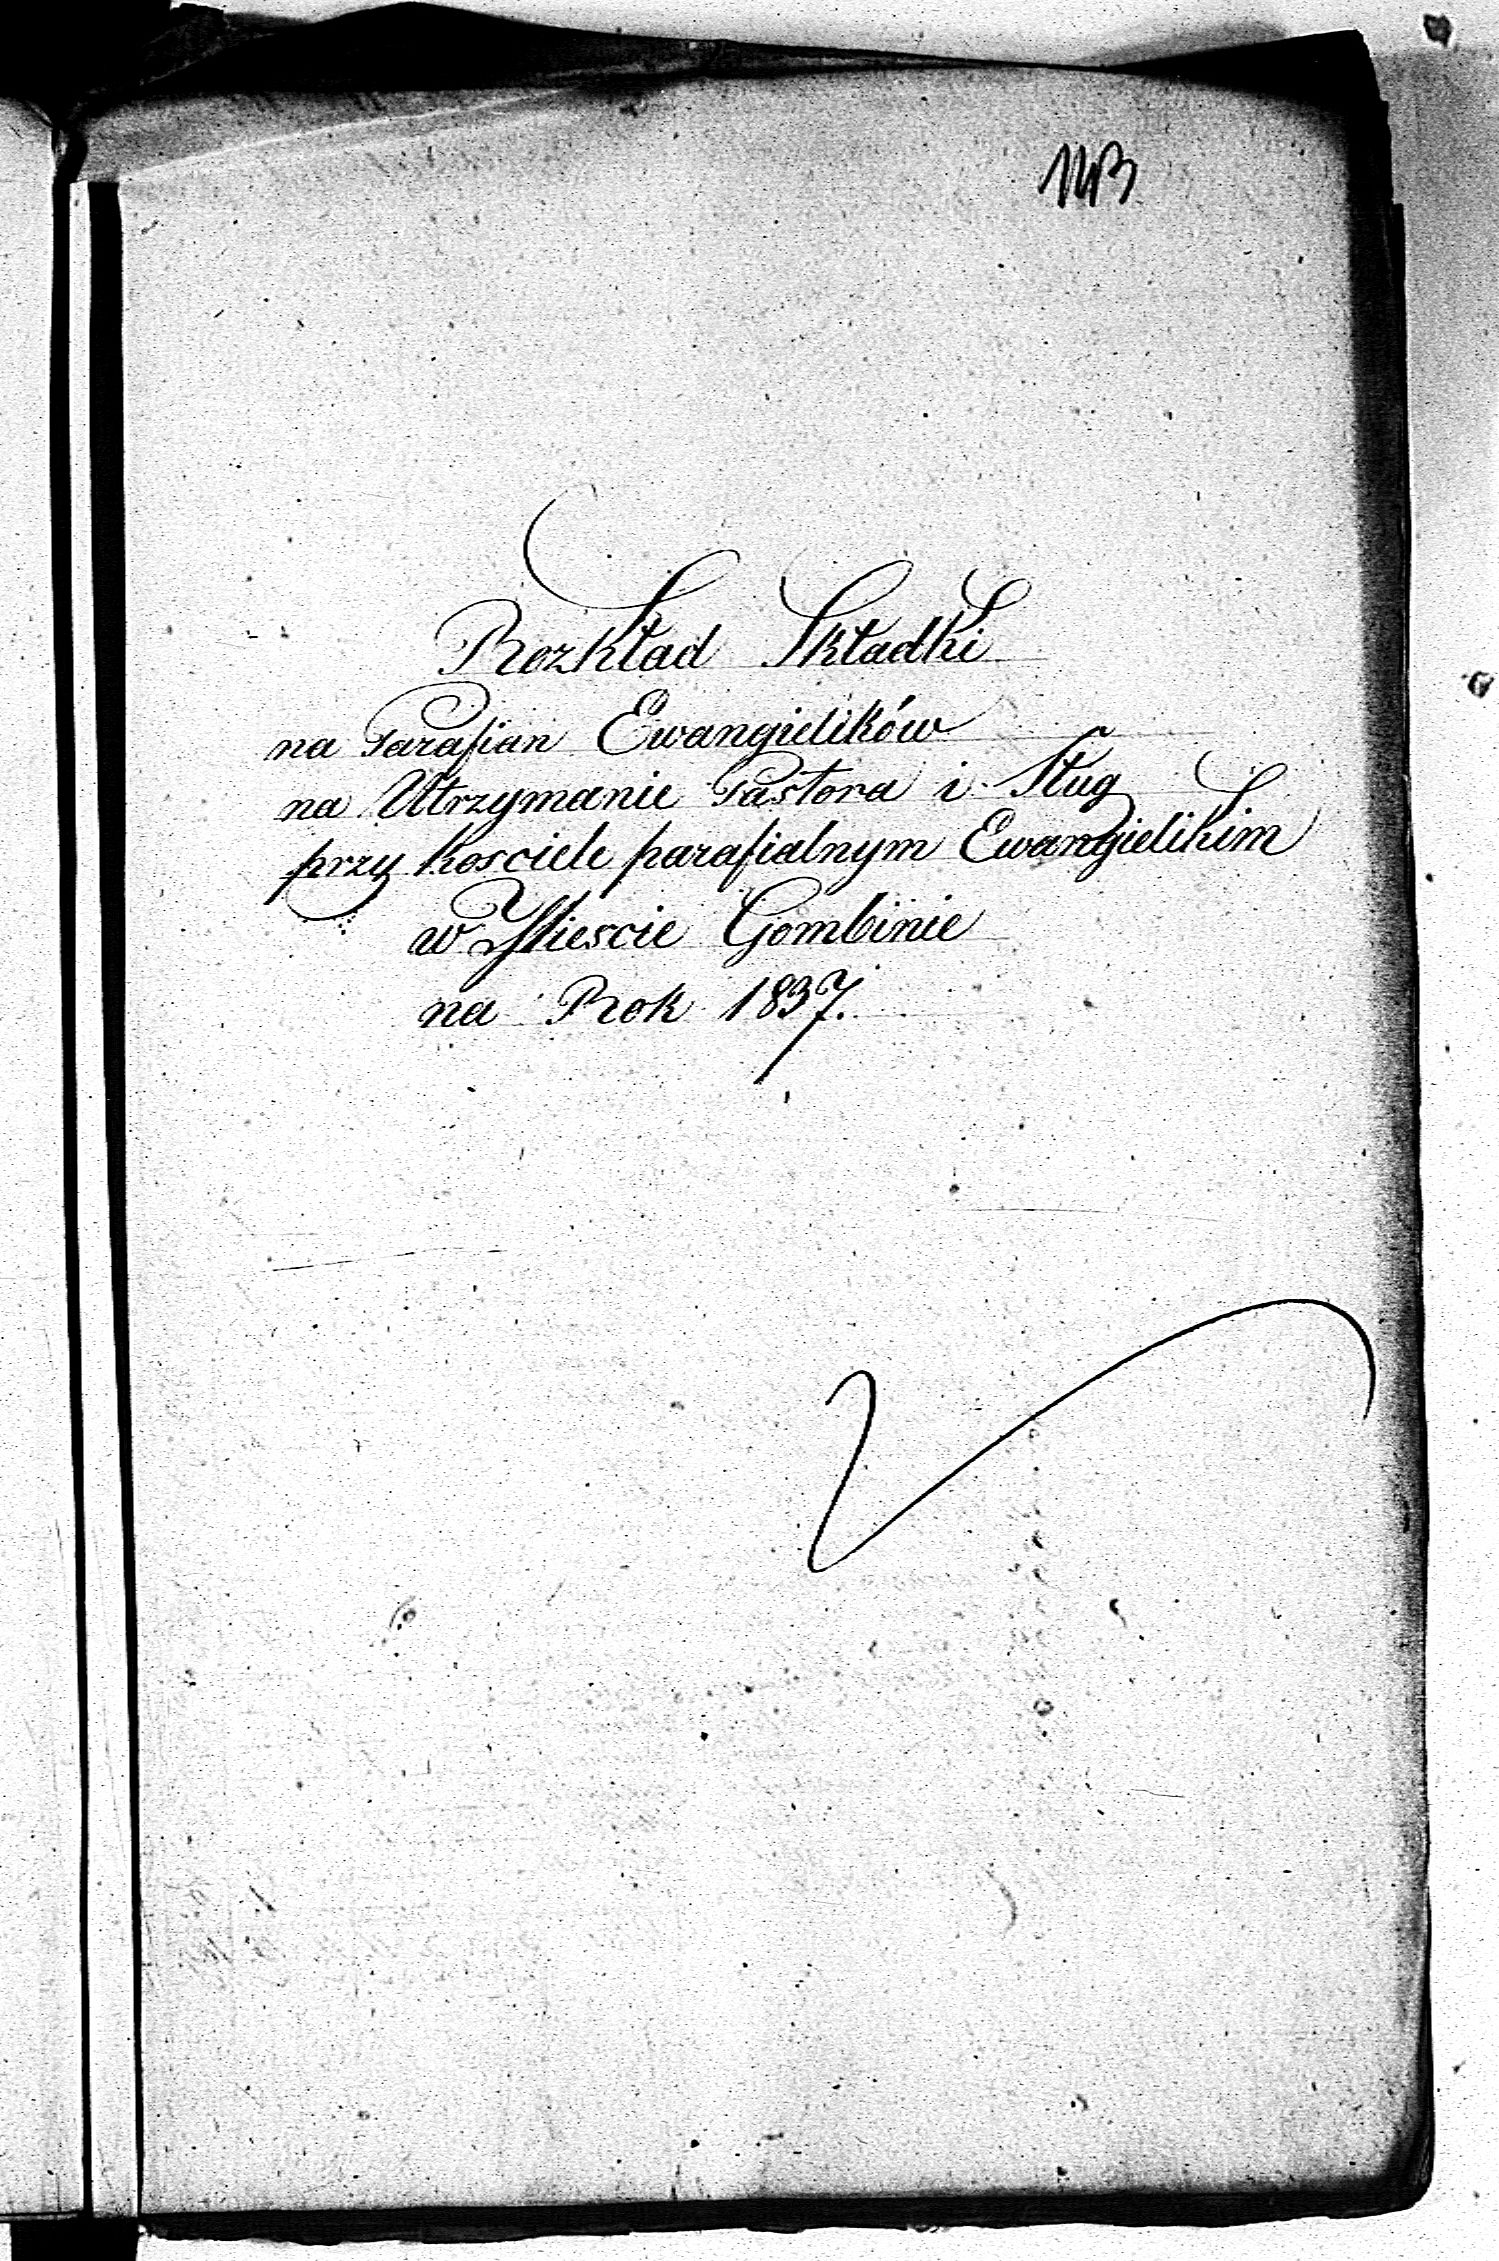 143
Rozkład Składki
na Parafian Ewangielików
na Utrzymanie Pastora i Sług
przy Kosciele parafialnym Ewangielikim
w Miescie Gombinie
na Rok 1837.